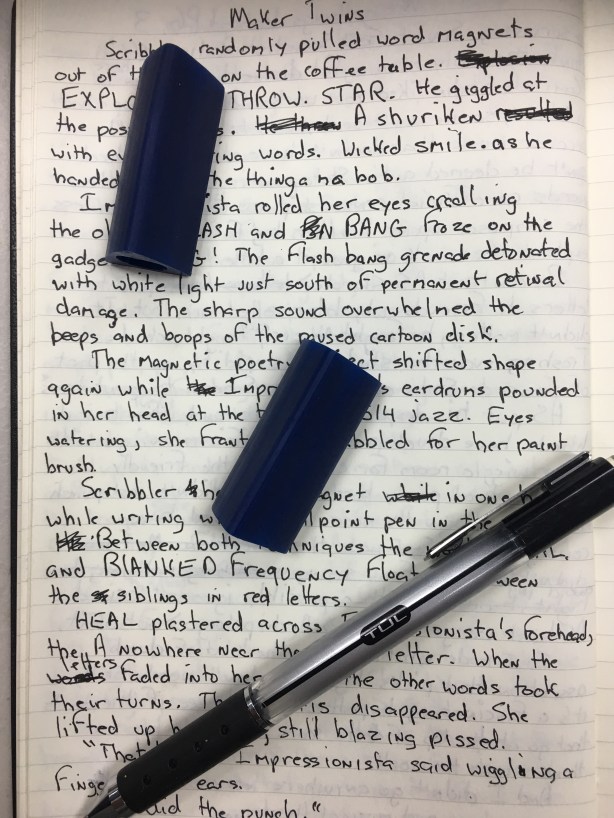 Maker Twins
Scribbl randomly pulled word magnets
out of t on the coffee table.
EXPLO THROW. STAR. He giggled at
the pos s. A shuriken
with ev ing words. Wicked smile. as he
handed he thing a na bob.
Im ista rolled her eyes cradling
the o ASH and BANG froze on the
gadge G! The Flash bang grenade detonated
with white light just south of permanent retinal
damage. The sharp sound overwhelmed the
beeps and boops of the paused cartoon disk.
The Magnetic poetry ect shifted shape
again while Impr s eardruns pounded
in her head at the t 014 Jazz. Eyes
watering, she frant bbled for her paint
brush.
Scribbler gnet in one h
while writing w l point pen in the
Between both niques the
and BLANKED Frequency Float ween
the siblings in red letters.
HEAL plastered across I ionista's forehead,
then A nowhere near the letter. When the
letters
faded into her he other words took
their turns. Th is disappeared. She
lifted up h , still blazing pissed.
"That Impressionista said wiggling a
Finge ears.
did the punch."
TUL